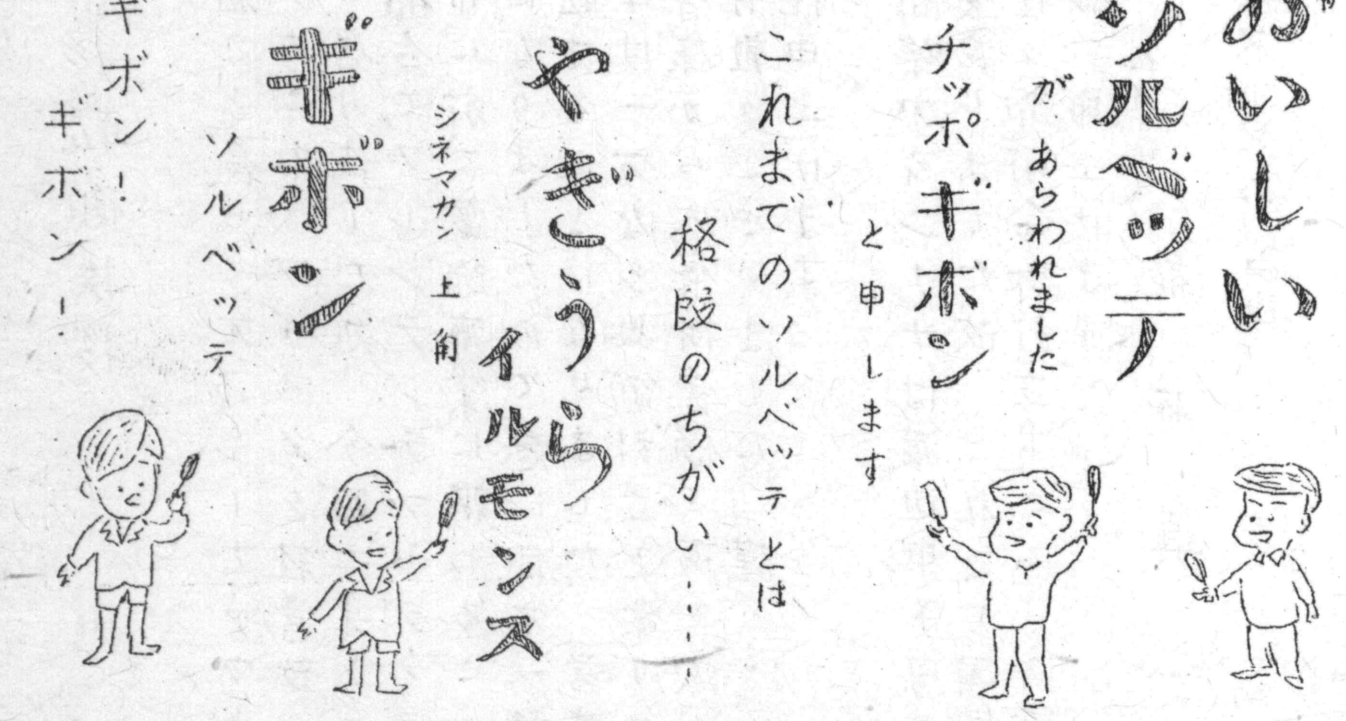 おいしい
ソルベッテ
があらわれました
チッポギボン
と申します
これまでのソルベッテとは
格段のちがい……
やぎうら
イルモンス
シネマカン 上角
ギボン
ソルベッテ
ギボン!
ギボンー